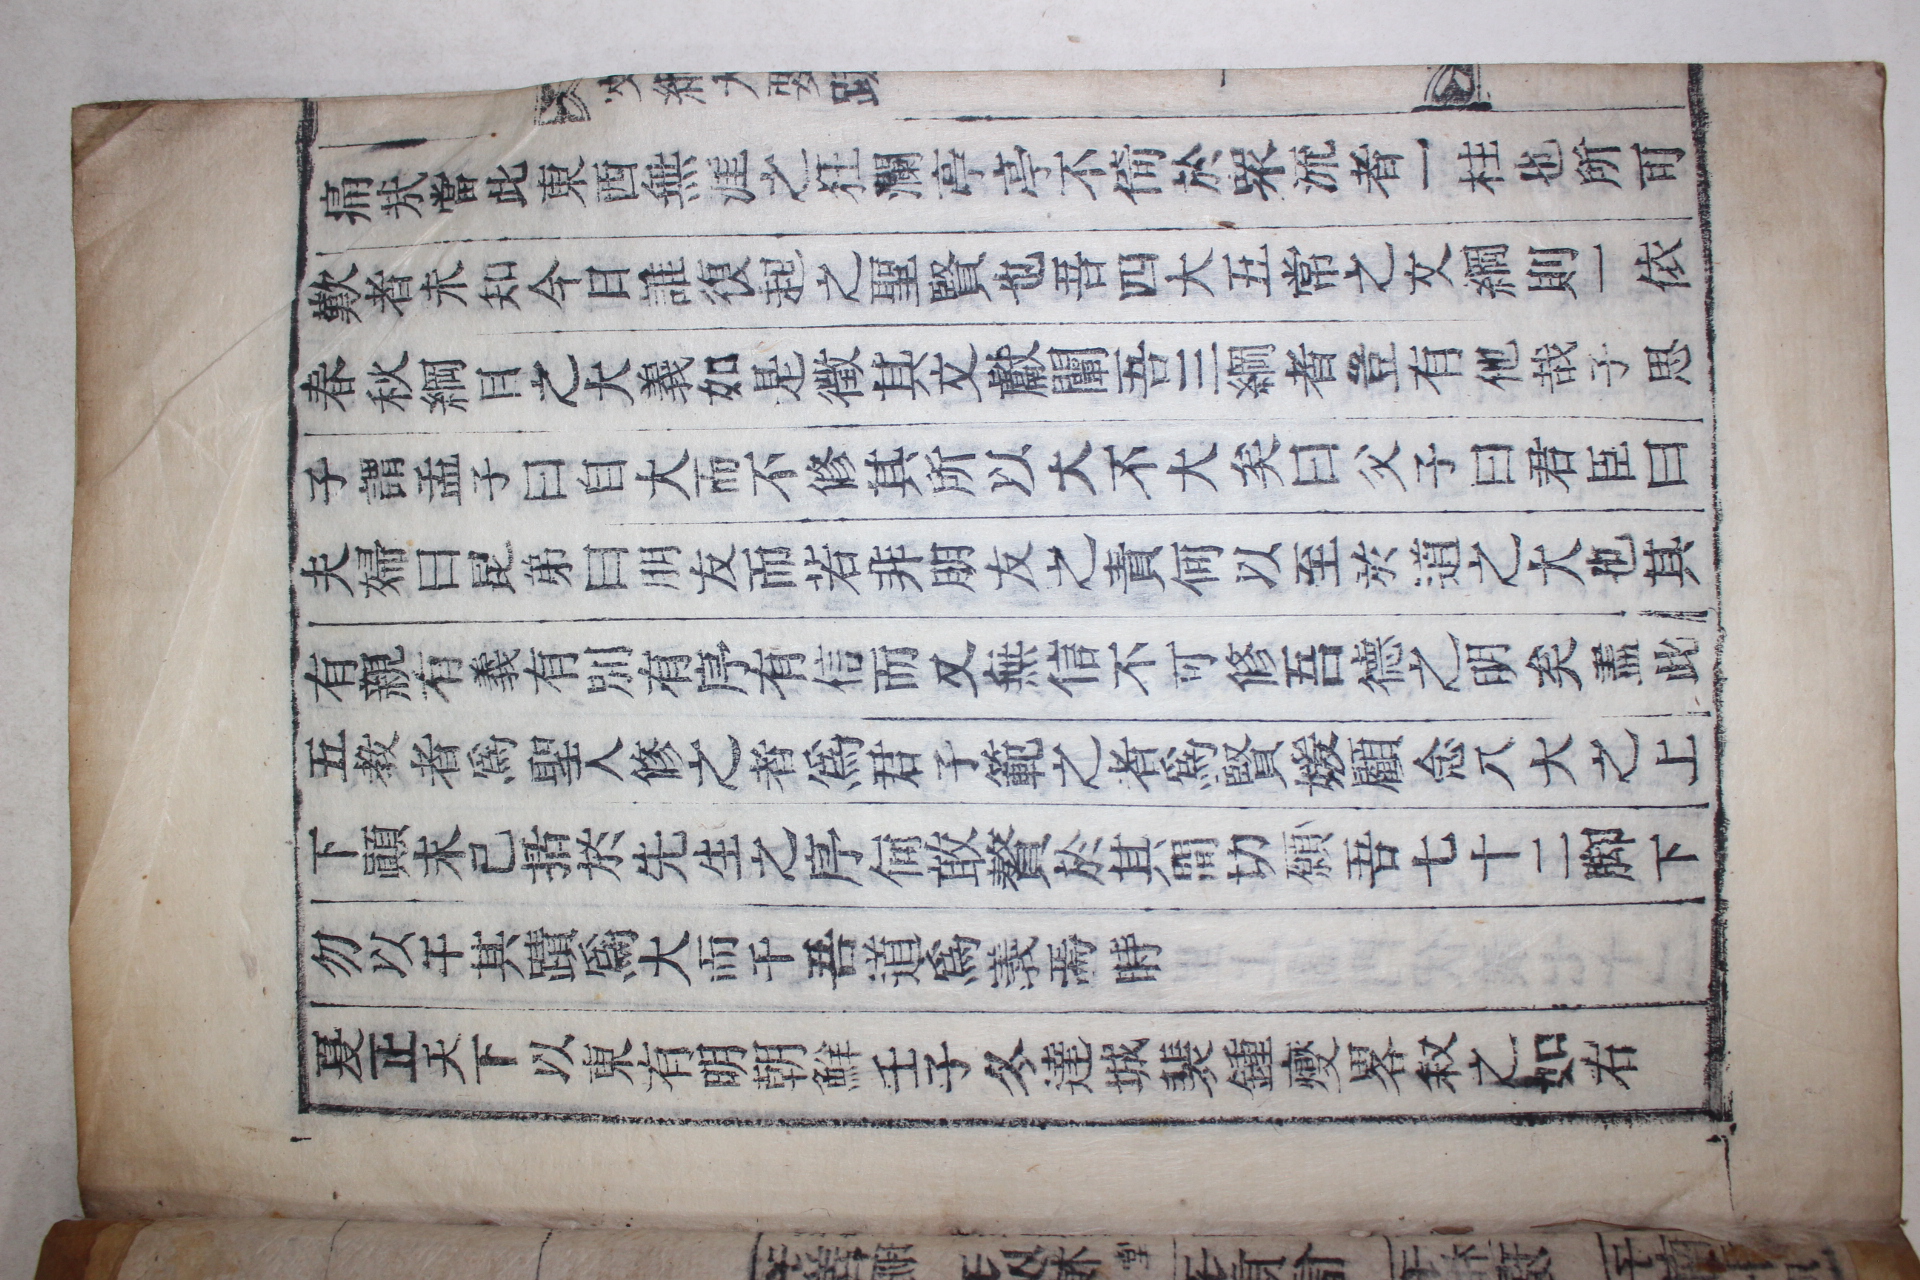 文綱大要跋
一
痛哉當此東西無涯之狂瀾亭亭不倚於眾流者一柱也所可
歎者未知今日誰復起之聖賢也吾四大五常之文綱則一依
春秋綱目之大義如是徵其文獻闡吾三綱者豈有他哉子思
子謂孟子曰自大而不修其所以大不大矣曰父子曰君臣曰
夫婦曰昆弟曰朋友而若非朋友之責何以至於道之大也其
有親有義有別有序有信而又無信不可修吾德之明矣盖此
五教者爲聖人修之者爲君子範之者爲賢媛顧念八大之上
下顚末已括於先生之序何敢贅於其間切願吾七十二脚下
勿以千其蹟爲大而千吾道爲義焉時
憂正天下以東有明朝鮮壬子冬達城裴鍾燮畧叙之如右